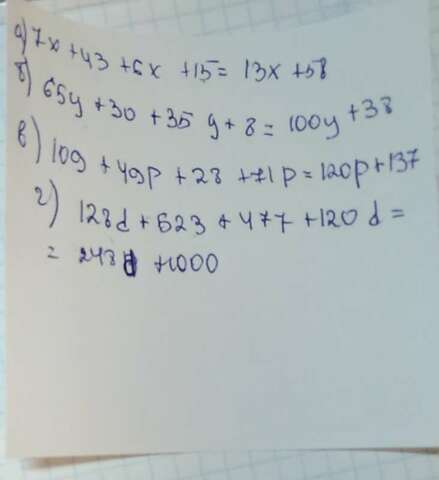 а) 7x + 43 + 6x + 15 = 13x + 58
б) 65y + 30 + 35 y + 8 = 100y + 38
в) 109 + 49p + 28 + 71p = 120p + 137
г) 128d + 523 + 477 + 120d =
= 248d + 1000